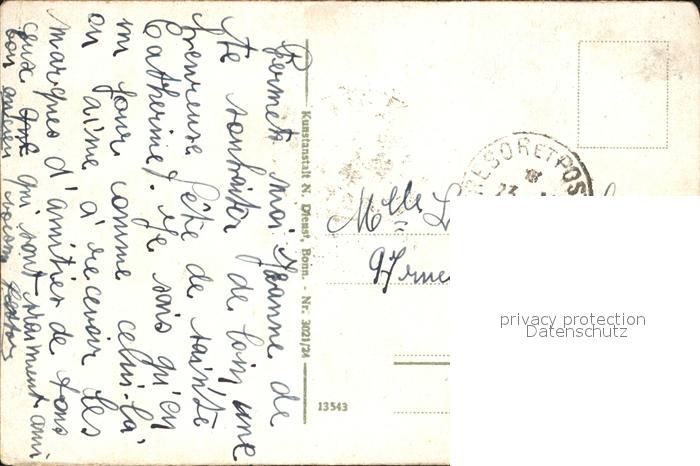 Permets moi Jeanne de
te souhaiter de loin une
heureuse fête de sainte
Catherine. Je sais qu'en
un jour comme celui-là
on aime à recevoir les
marques d'amitiés de tous
ceux qui sont vraiment ami
bon
Kunstanstalt N. Dienst, Bonn. - Nr. 3021/24
TRESOR ET POS
23
Mlle L
97 rue
13543
privacy protection
Datenschutz